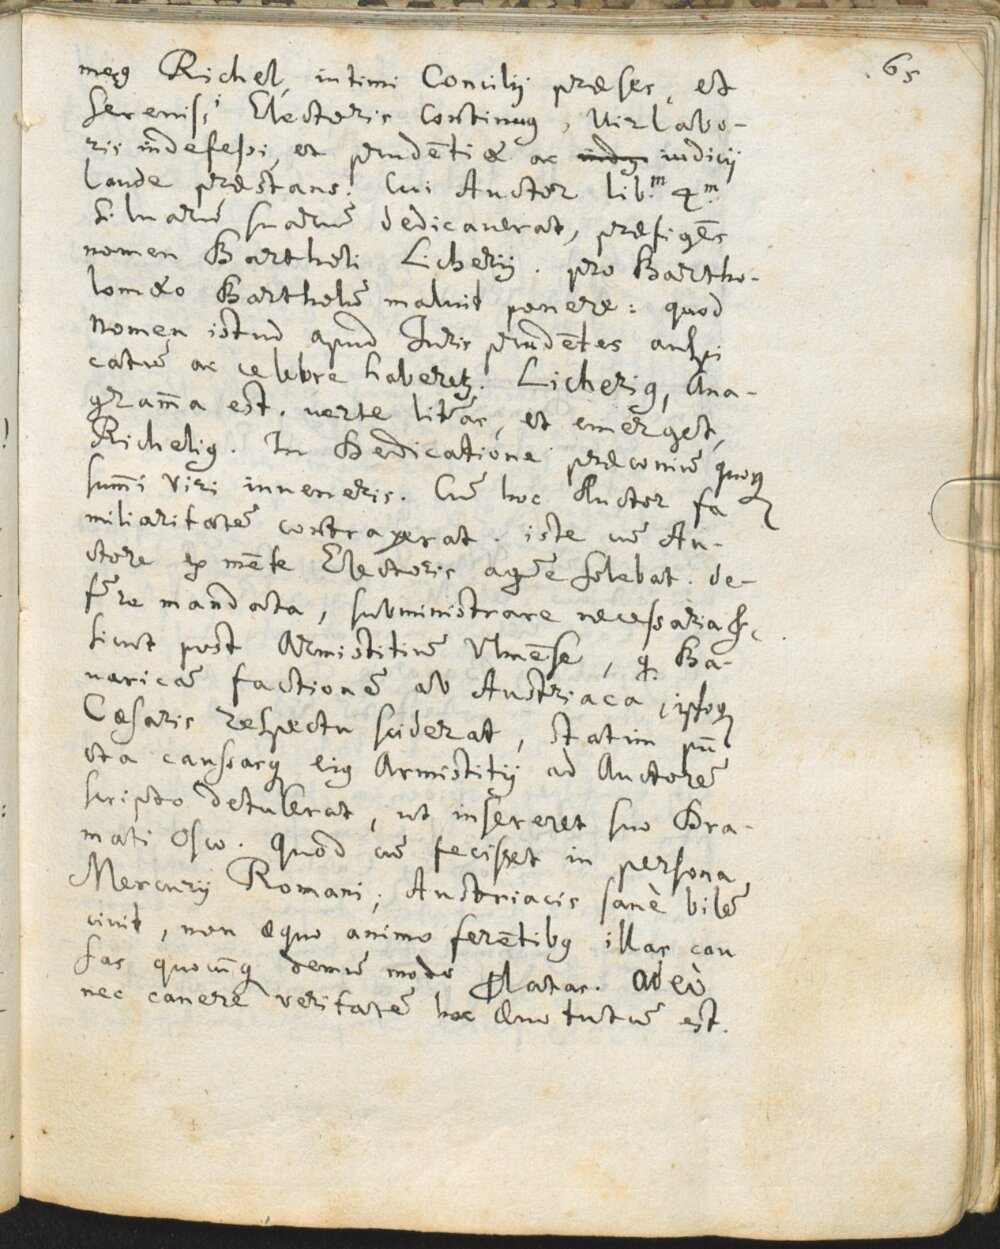 65
meꝫ Richel, intimi Concilij præses, et
Serenissⁱ Electoris Continuꝫ, Vir labo-
ris indefessi, et prudẽtiæ ac iudicij
laude præstans. Cui Auctor lib.ᵐ 4.ᵐ
Siluarũ suarũ dedicauerat, præfigẽs
nomen Bartholi Licherij. pro Bartho-
lomæo Bartholũ maluit ponere: quod
nomen istud apud Juris prudẽtes auspi
catũ ac celebre haberetꝫ. Licheriꝫ, Ana-
gram̃a est. verte literas, et emerget,
Richeliꝫ. In Dedicatione præconiũ quoqꝫ
sum̃i Viri inueneris. Cũ hoc Auctor fa
miliaritatẽ contraxerat. iste cũ Au-
ctore ex mẽte Electoris agere solebat. de-
ferre mandata, subministrare necessaria &c.
sicut post Armistitiũ Vlmẽse, q. Ba-
uaricã factionẽ ab Austriaca, ipsoqꝫ
Cæsaris respectu sciderat, statim pũ
cta caussasqꝫ eiꝫ Armistitij ad Auctorẽ
scripto detulerat, ut insereret suo Dra-
mati Osco. Quod cũ fecisset in persona
Mercurij Romani, Austriacis sanè bilẽ
ciuit, non æquo animo ferẽtibꝫ illas cau
sas quocũqꝫ demũ modo platas. adeò
nec canere veritatẽ hoc æuo tutũ est.